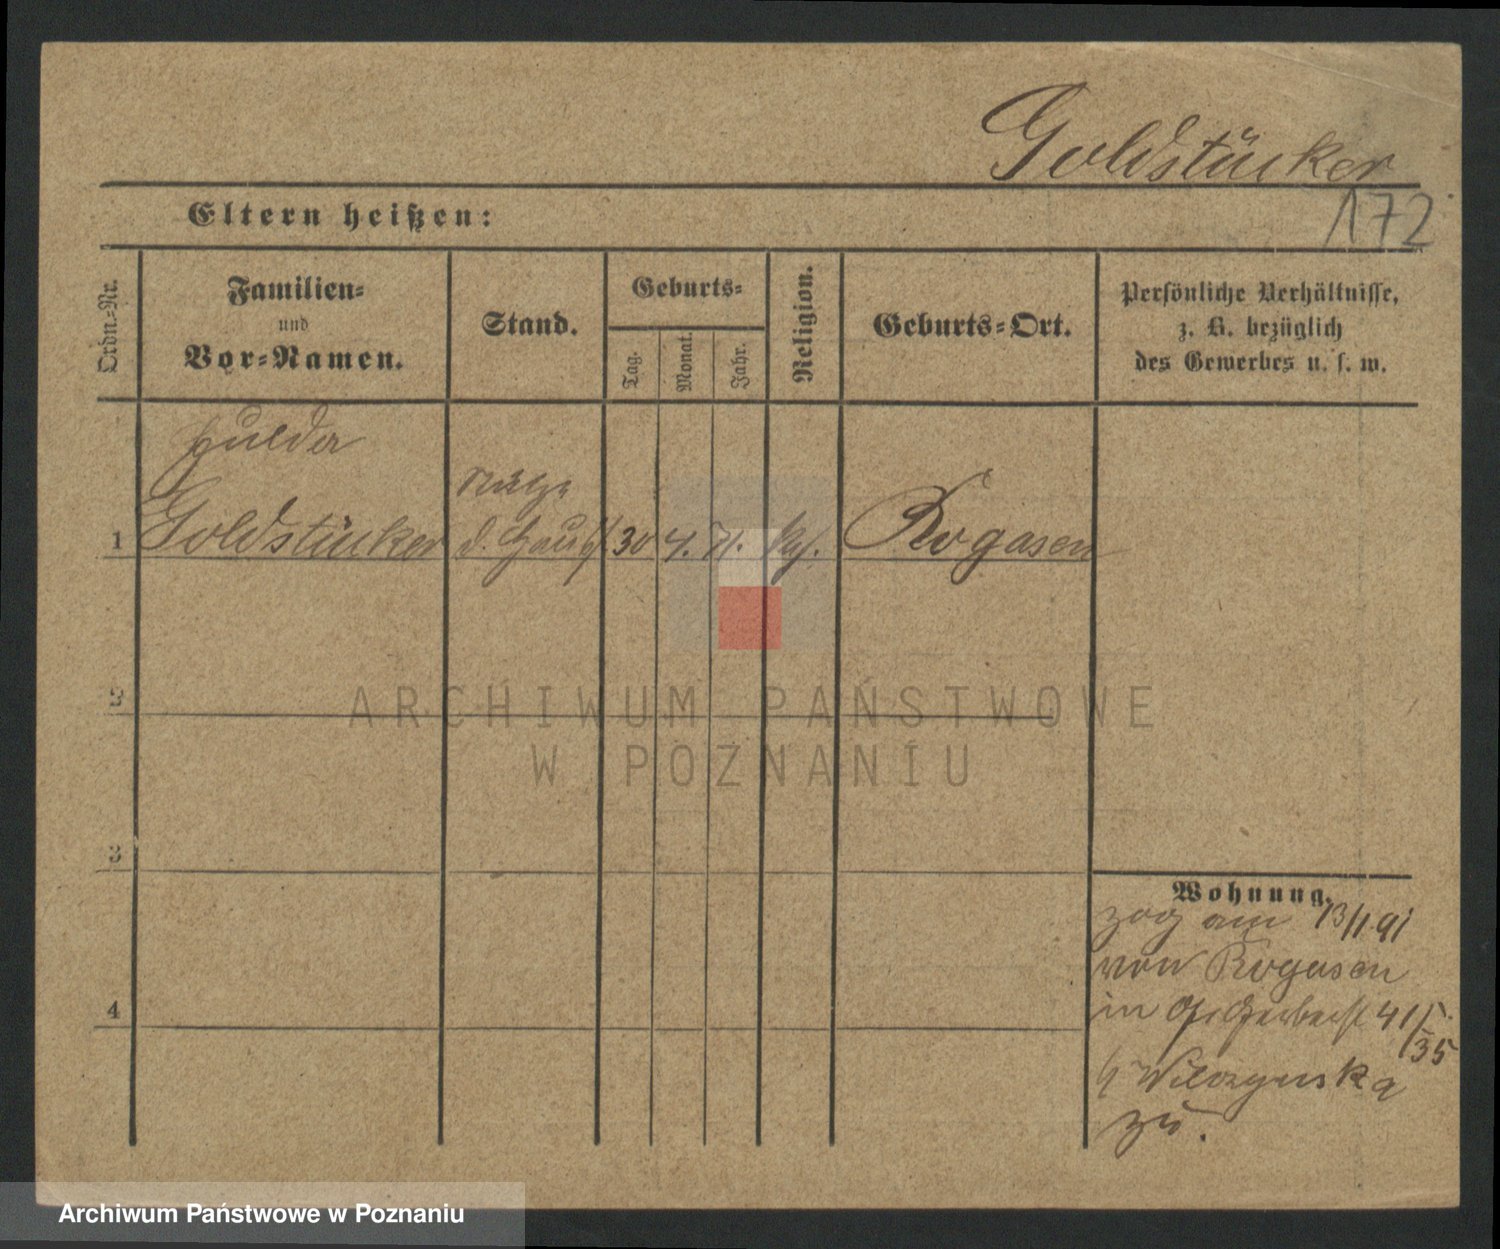 Goldstücker
172
Eltern heißen:
Ordn.-Nr.
Familien-
und
Vor-Namen.
Stand.
Geburts-
Tag.
Monat.
Jahr.
Religion.
Geburts-Ort.
Persönliche Verhältnisse,
z. B. bezüglich
des Gewerbes u. s. w.
Hulda
1 Goldstücker 30 4. 71. Rogasen
2
3
4
Wohnung.
zog am 13/1 91
von Rogasen
in Gr. Gerberst 41
35
Wilczynska
zu.
ARCHIWUM PAŃSTWOWE
W POZNANIU
Archiwum Państwowe w Poznaniu